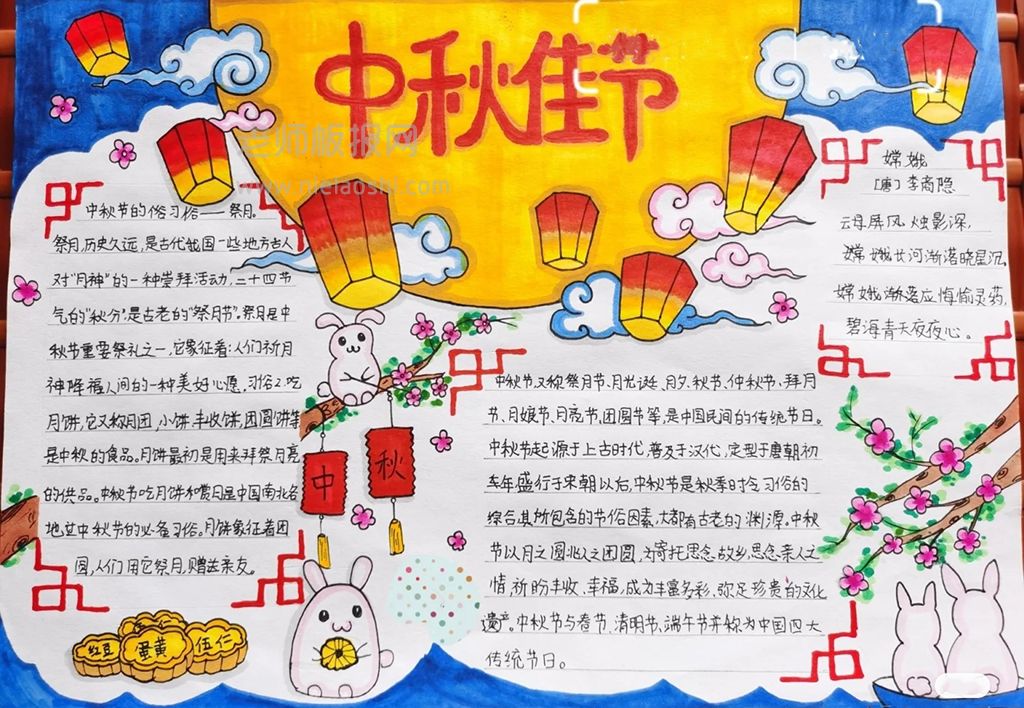 中秋佳节
中秋节的俗习俗——祭月。
祭月,历史久远,是古代我国一些地方古人
对"月神"的一种崇拜活动,二十四节
气的"秋分"是古老的"祭月节"。祭月是中
秋节重要祭礼之一,它象征着:人们祈月
神降福人间的一种美好心愿,习俗2.吃
月饼,它又称月团,小饼,丰收饼,团圆饼等
是中秋的食品。月饼最初是用来拜祭月亮
的供品。中秋节吃月饼和赏月是中国南北各
地过中秋节的必备习俗。月饼象征着团
圆,人们用它祭月,赠送亲友。
红豆
蛋黄
伍仁
中
秋
中秋节又称祭月节、月光诞、月夕、秋节、仲秋节、拜月
节、月娘节、月亮节、团圆节等,是中国民间的传统节日。
中秋节起源于上古时代,普及于汉代,定型于唐朝初
年,盛行于宋朝以后,中秋节是秋季时令习俗的
综合,其所包含的节俗因素,大都有古老的渊源。中秋
节以月之圆兆人之团圆,为寄托思念故乡,思念亲人之
情,祈盼丰收、幸福,成为丰富多彩、弥足珍贵的文化
遗产。中秋节与春节、清明节、端午节并称为中国四大
传统节日。
嫦娥
[唐]李商隐
云母屏风烛影深,
嫦娥长河渐落晓星沉。
嫦娥渐落应悔偷灵药,
碧海青天夜夜心。
老师板报网